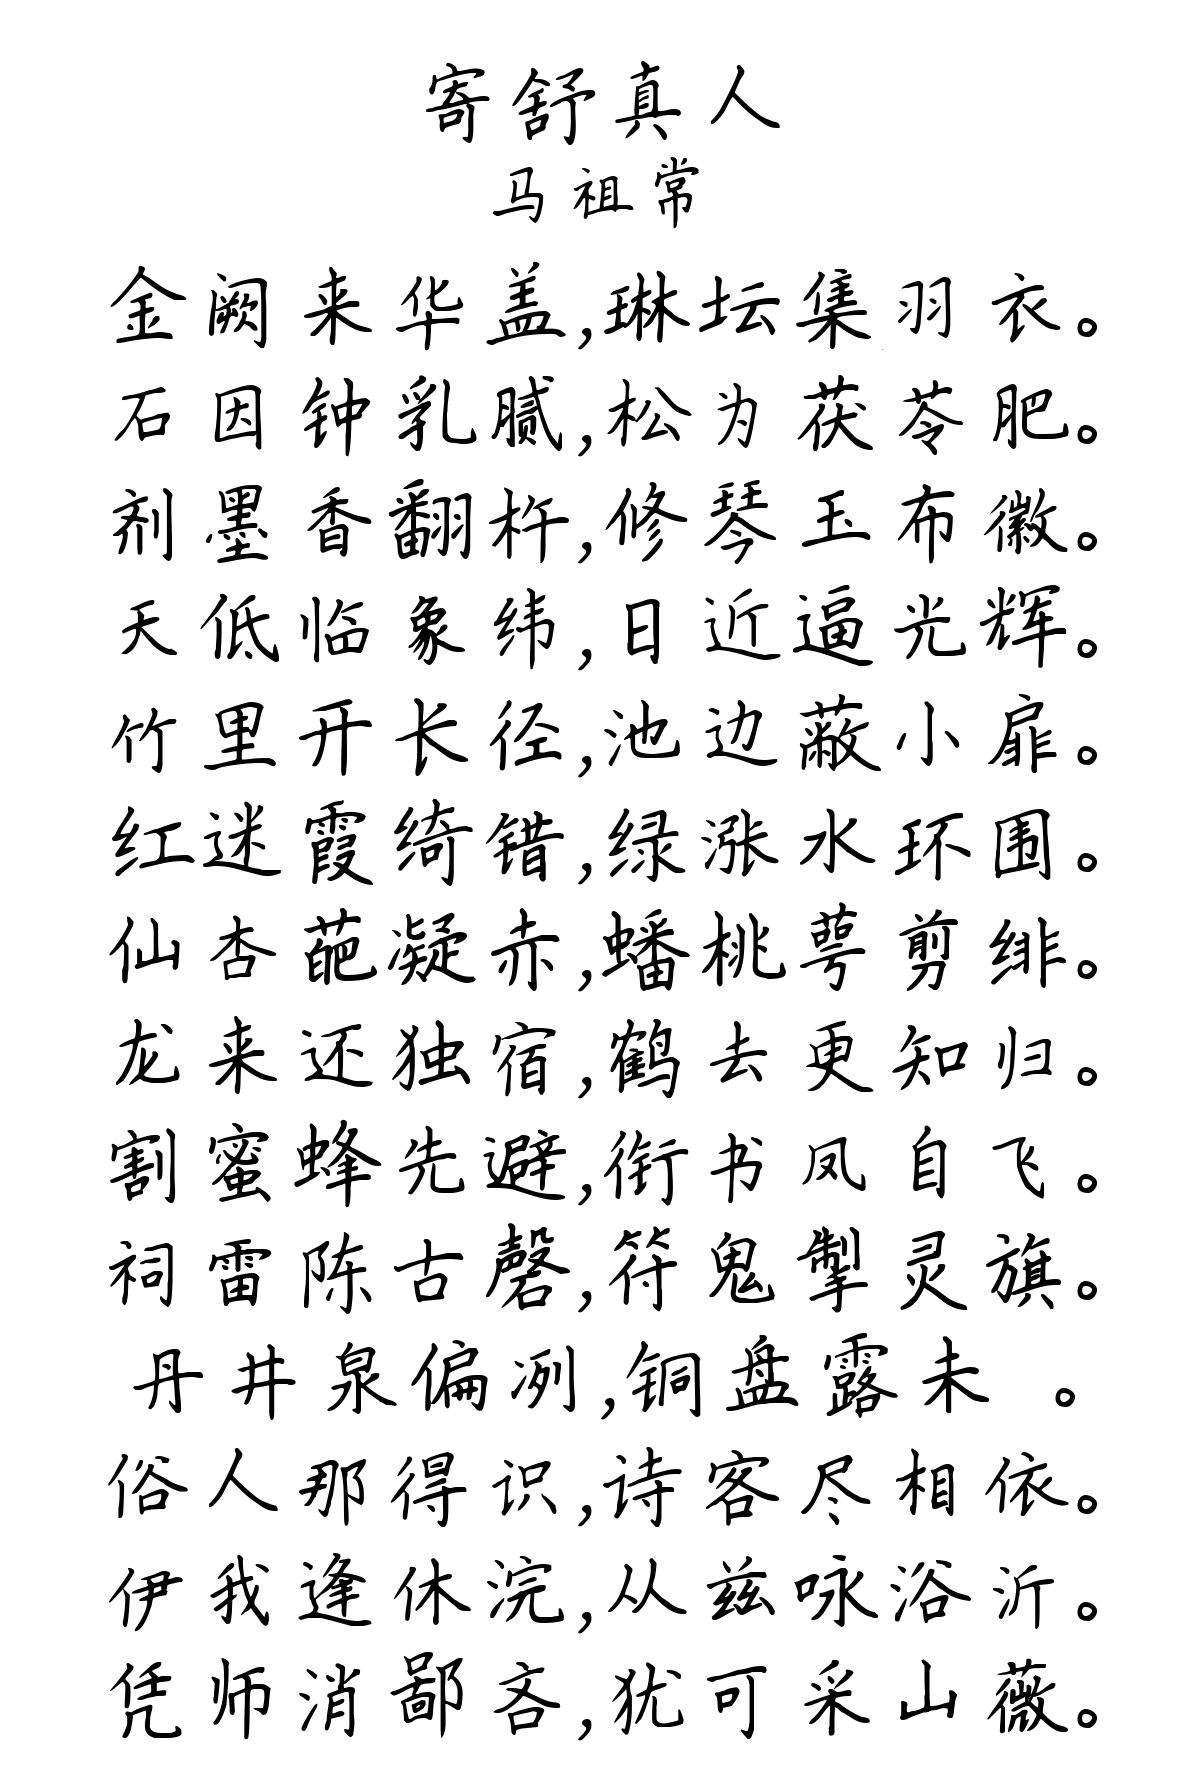 寄舒真人
马祖常
金阙来华盖,琳坛集羽衣。
石因钟乳腻,松为茯苓肥。
剂墨香翻杵,修琴玉布徽。
天低临象纬,日近逼光辉。
竹里开长径,池边蔽小扉。
红迷霞绮错,绿涨水环围。
仙杏葩凝赤,蟠桃萼剪绯。
龙来还独宿,鹤去更知归。
割蜜蜂先避,衔书凤自飞。
祠雷陈古磬,符鬼掣灵旗。
丹井泉偏冽,铜盘露未 。
俗人那得识,诗客尽相依。
伊我逢休浣,从兹咏浴沂。
凭师消鄙吝,犹可采山薇。